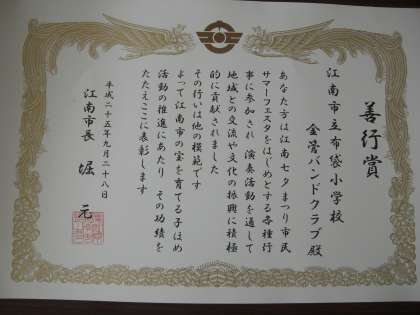 善行賞
江南市立布袋小学校
金管バンドクラブ殿
あなた方は江南七夕まつり市民
サマーフェスタをはじめとする各種行
事に参加され 演奏活動を通して
地域との交流や文化の振興に積極
的に貢献されました
その行いは他の模範です
よって江南市の宝を育てる子ほめ
活動の推進にあたり その功績を
たたえここに表彰します
平成二十五年九月二十八日
江南市長 堀 元